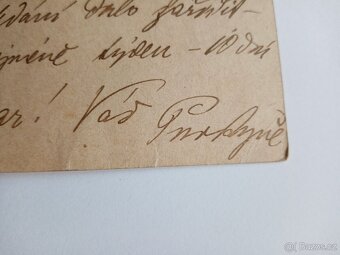 dání dalo zařídit-
jméně týden - 10 dní
ar! Váš Purkyně
Bazos.cz